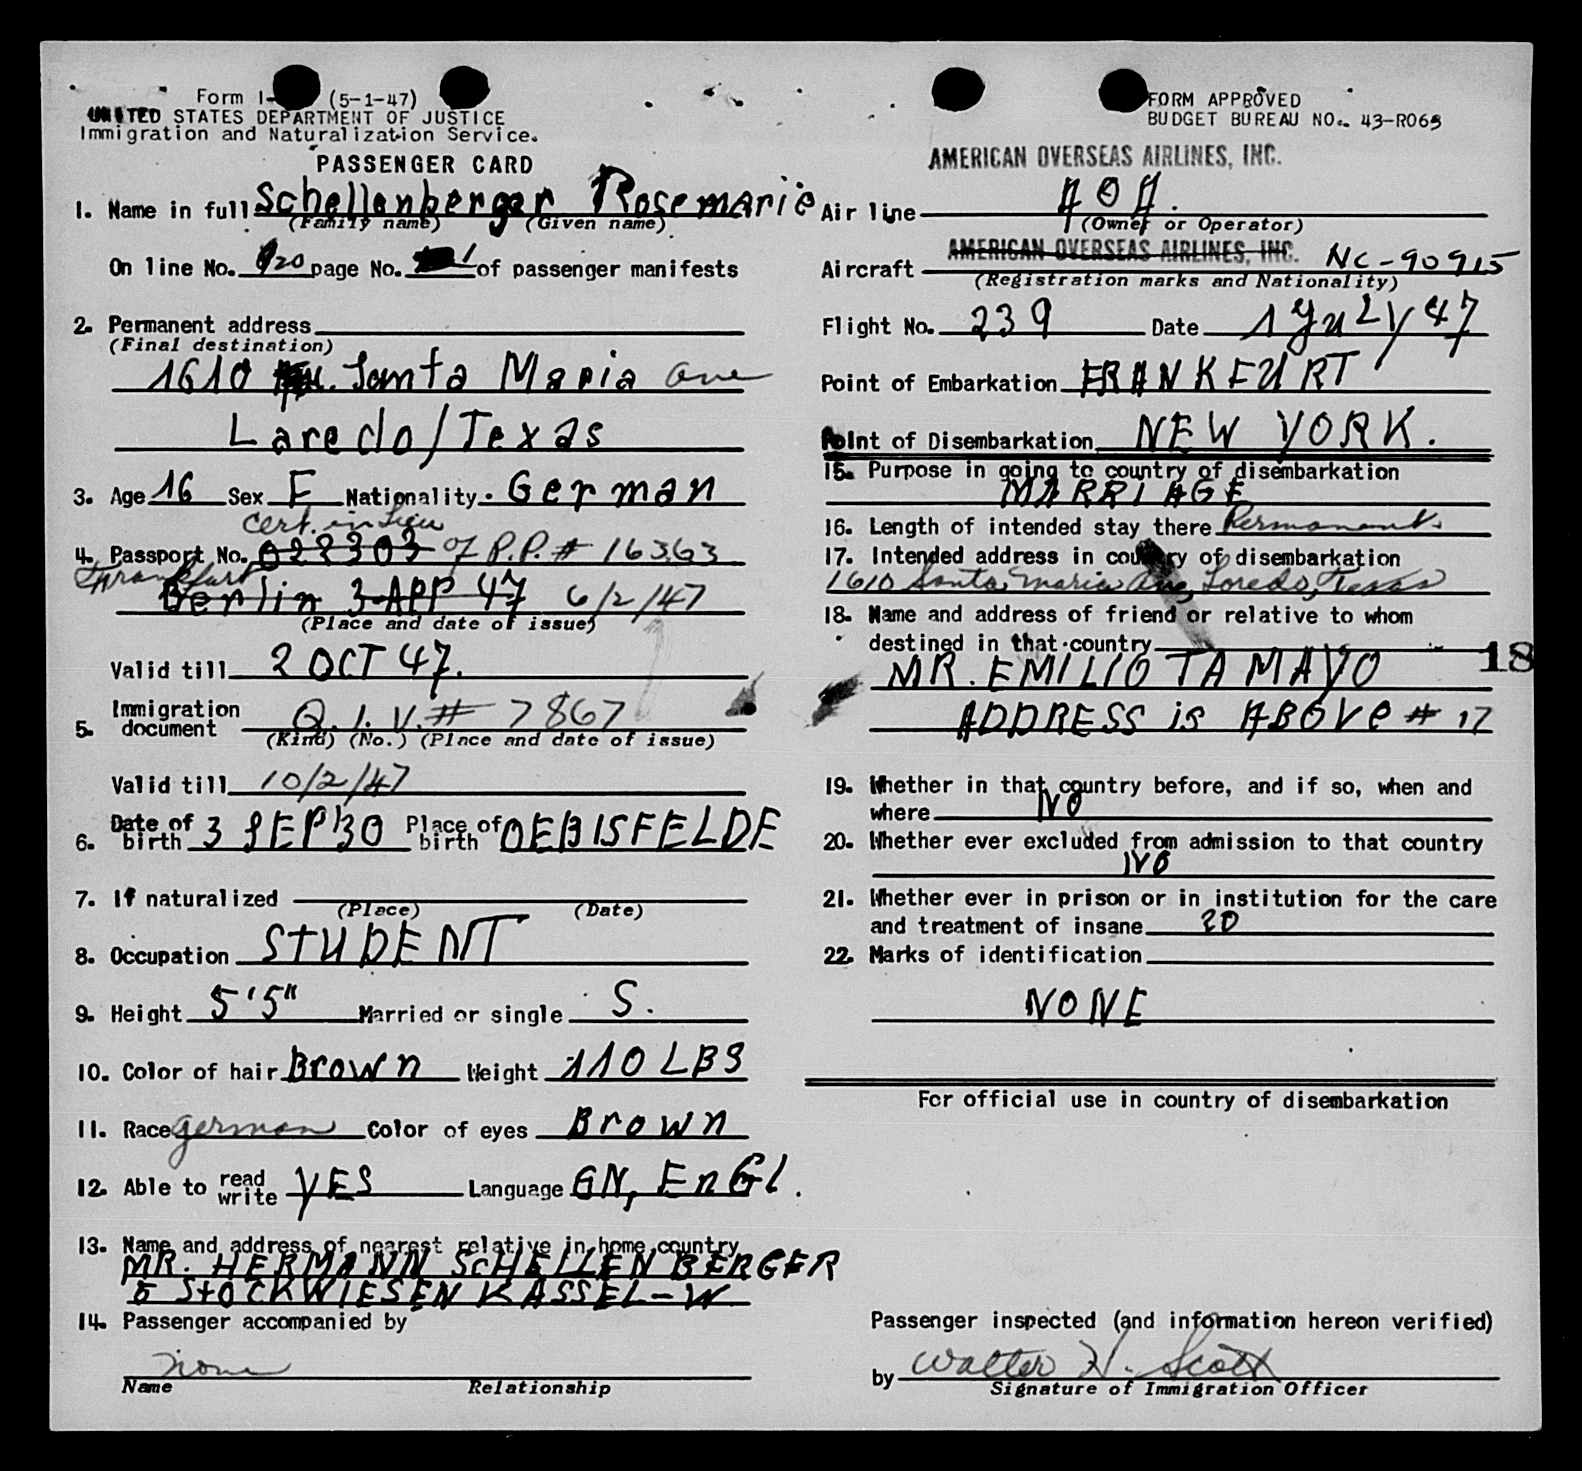 Form I- (5-1-47)
UNITED STATES DEPARTMENT OF JUSTICE
Immigration and Naturalization Service.
PASSENGER CARD
1. Name in full Schellenberger Rosemarie
(Family name) (Given name)
On line No. 20 page No. 1 of passenger manifests
2. Permanent address
(Final destination)
1610 Santa Maria Ave
Laredo/Texas
3. Age 16 Sex F Nationality. German
Cert. in Lieu
4. Passport No. 028303 of P.P. # 16363
Frankfurt
Berlin 3 APP 47 6/2/47
(Place and date of issue)
Valid till 2 OCT 47.
5. Immigration document Q.I.V. # 7867
(Kind) (No.) (Place and date of issue)
Valid till 10/2/47
6. Date of birth 3 SEP 30 Place of birth OEBISFELDE
7. If naturalized
(Place) (Date)
8. Occupation STUDENT
9. Height 5'5" Married or single S.
10. Color of hair Brown Weight 110 LBS
11. Race German Color of eyes Brown
12. Able to read write YES Language GN, EnGl.
13. Name and address of nearest relative in home country
MR. HERMANN SCHELLENBERGER
5 STOCKWIESEN KASSEL-W.
14. Passenger accompanied by
None
Name Relationship
FORM APPROVED
BUDGET BUREAU NO. 43-R065
AMERICAN OVERSEAS AIRLINES, INC.
Air line AOA.
(Owner or Operator)
Aircraft AMERICAN OVERSEAS AIRLINES, INC. NC-90915
(Registration marks and Nationality)
Flight No. 239 Date 1 July 47
Point of Embarkation FRANKFURT
Point of Disembarkation NEW YORK.
15. Purpose in going to country of disembarkation
MARRIAGE
16. Length of intended stay there Permanent.
17. Intended address in country of disembarkation
1610 Santa Maria Ave, Loredo, Texas
18. Name and address of friend or relative to whom
destined in that country
18
MR. EMILIO TAMAYO
ADDRESS is ABOVE # 17
19. Whether in that country before, and if so, when and
where NO
20. Whether ever excluded from admission to that country
NO
21. Whether ever in prison or in institution for the care
and treatment of insane
22. Marks of identification
NONE
For official use in country of disembarkation
Passenger inspected (and information hereon verified)
by Walter H. Scott
Signature of Immigration Officer